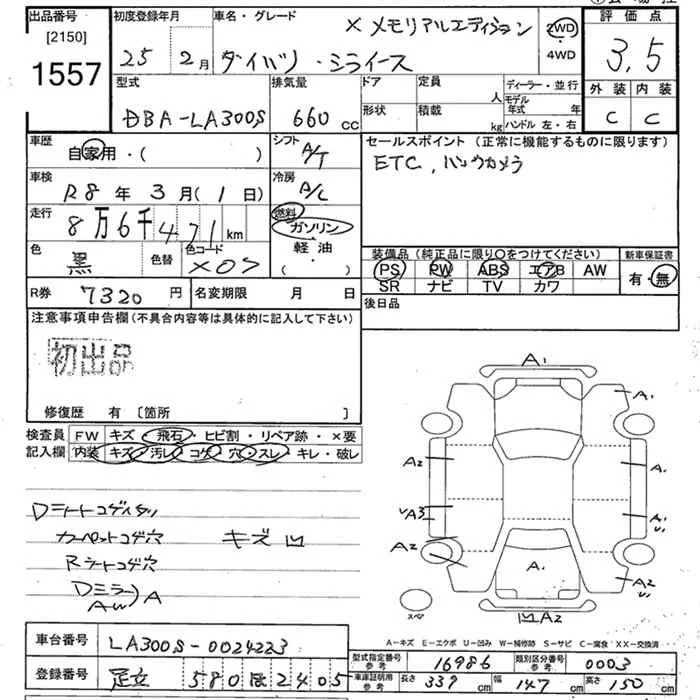 出品番号 初度登録年月 車名・グレード 評価点
[2150]
1557
25 2月
× メモリアルエディション
ダイハツ・ミライース
2WD
4WD
3.5
型式 排気量 ドア 定員 ディーラー・並行 外装 内装
DBA-LA300S 660 CC
形状 積載 人 kg
モデル年式 年
ハンドル 左・右
C C
車歴 自家用・( )
シフト A/T
セールスポイント(正常に機能するものに限ります)
ETC、バックカメラ
車検 R8年3月(1日)
冷房 A/C
走行 8万6千471km
燃料 ガソリン 軽油 ( )
色 黒 色替 色コード X07
装備品(純正品に限り○をつけてください) 新車保証書
PS PW ABS エアB AW 有・無
SR ナビ TV カワ
R券 7320円 名変期限 月 日
後日品
注意事項申告欄(不具合内容等は具体的に記入して下さい)
初出品
修復歴 有 〔箇所 〕
検査員 FW キズ・飛石・ヒビ割・リペア跡・×要
記入欄 内装 キズ・汚レ・コゲ・穴・スレ・キレ・破レ
カーペットコゲ穴 キズ凹
Rシートコゲ穴
Dミラー
AW A
A1
A1
A2 A1
A3 A1 U1
A2 A1 A2 U1
スペア 凹A2
A-キズ E-エクボ U-凹み W-補修跡 S-サビ C-腐食 XX-交換済
車台番号 LA300S-0024223
登録番号 足立 580 ほ 2405
型式指定番号 参考 16986 類別区分番号 参考 0003
車庫証明用 参考 長さ 339cm 幅 147cm 高さ 150cm